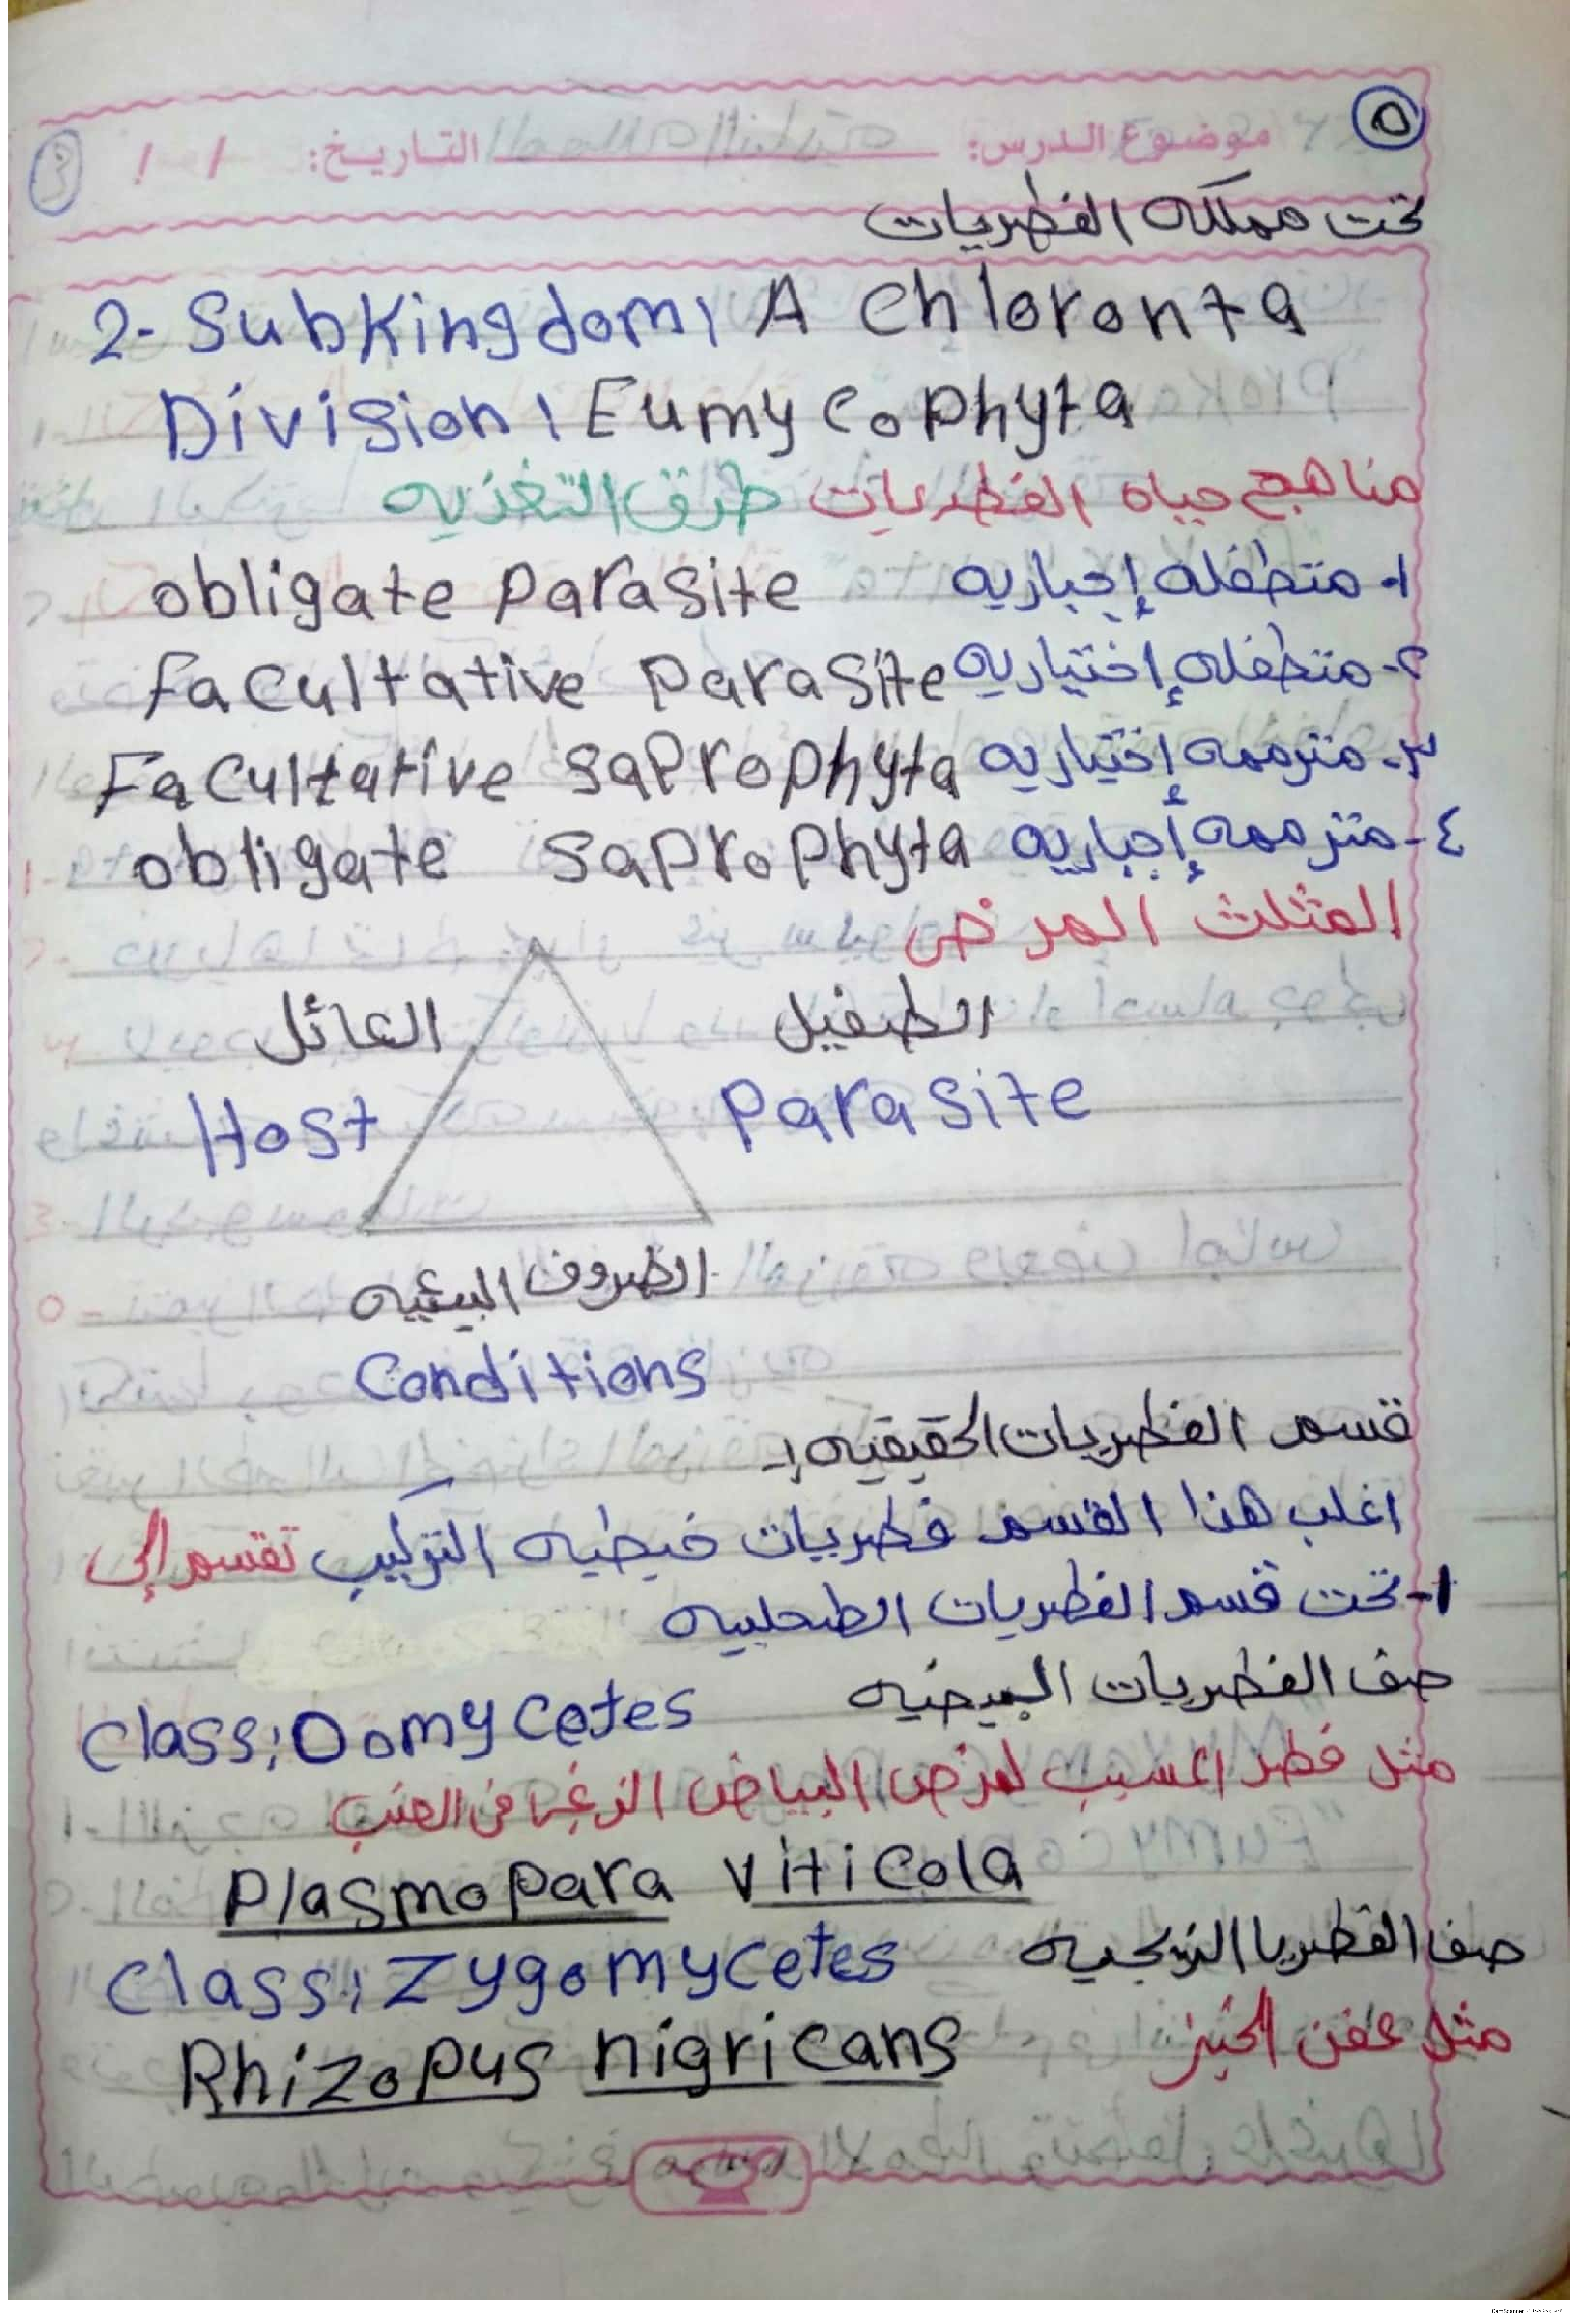 ٥
موضوع الدرس: التاريخ: / /
تحت مملكه الفطريات
2- Subkingdom: A Chloronta
Division: Eumycophyta
مناهج حياه الفطريات طرق التغذيه
١- متطفله إجباريه obligate parasite
٢- متطفله إختياريه Facultative parasite
٣- مترممه إختياريه Facultative saprophyta
٤- مترممه إجباريه obligate saprophyta
المثلث المرضى
العائل الطفيل
Host Parasite
الظروف البيئيه
Conditions
قسم الفطريات الحقيقيه :-
اغلب هذا القسم فطريات خيطيه التركيب تقسم إلى
١- تحت قسم الفطريات الطحلبيه
صف الفطريات البيضيه
Class: Oomycetes
مثل فطر المسبب لمرض البياض الزغبى فى العنب
Plasmopara viticola
صف الفطريا الزيجيه
Class: Zygomycetes
مثل عفن الخبز
Rhizopus nigricans
الممسوحة ضوئيا بـ CamScanner